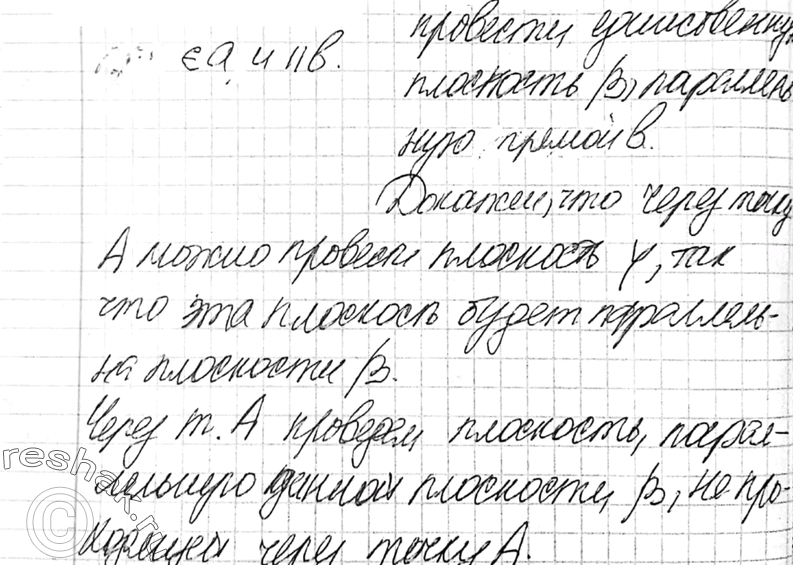 провести единственную
∈a и ||b.
плоскость β, параллель
ную прямой b.
Докажем, что через точку
A можно провести плоскость γ, так
что эта плоскость будет параллель-
на плоскости β.
Через т. A проведем плоскость, парал-
лельную данной плоскости β, не про-
ходящей через точку A.
reshak.ru
©